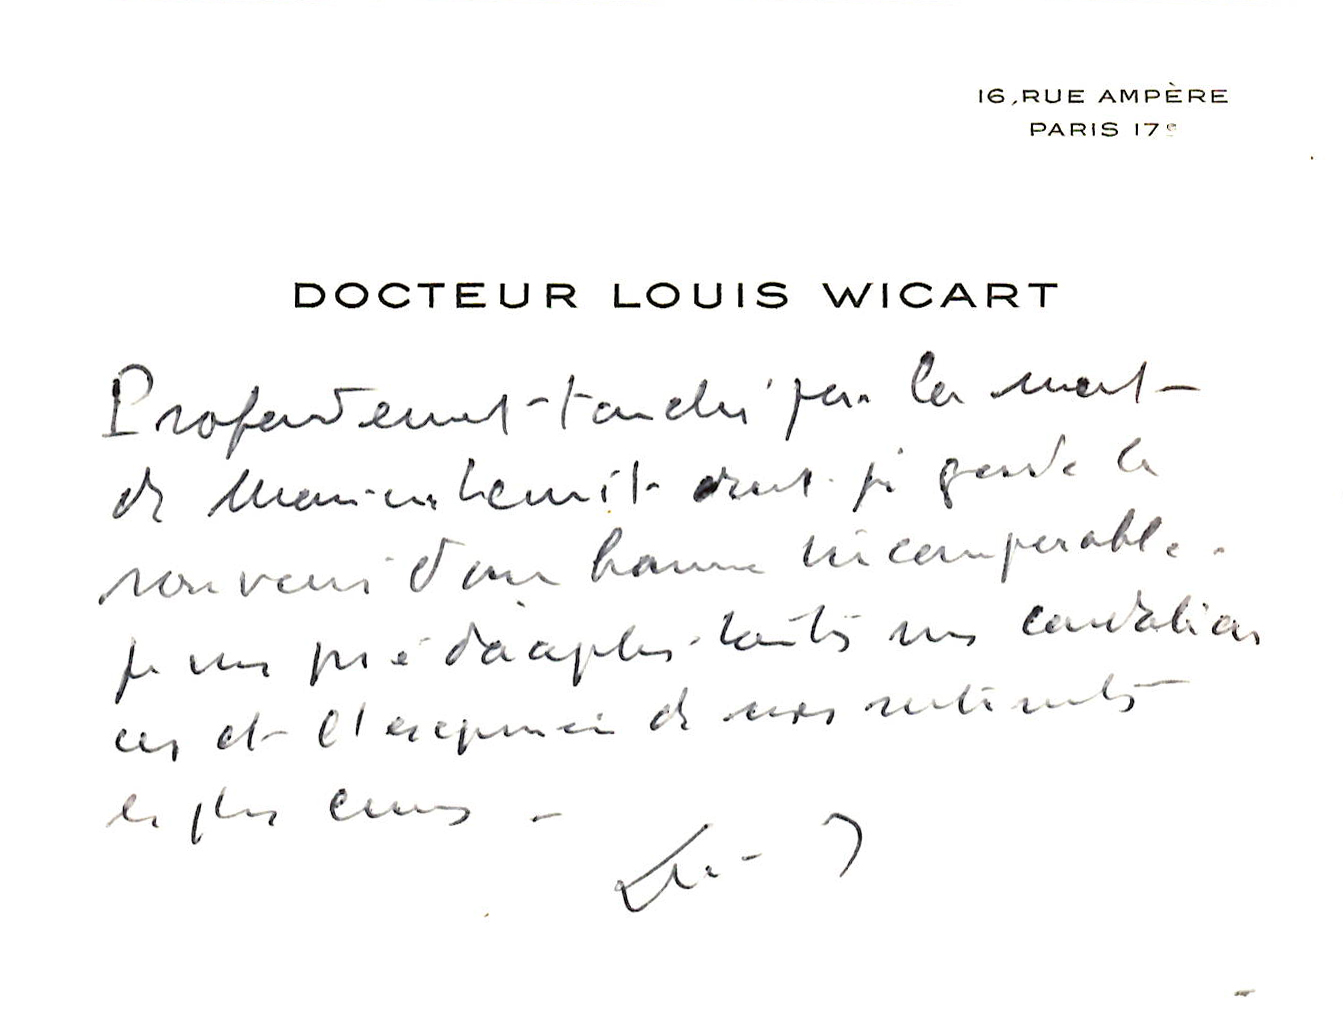 16, RUE AMPÈRE
PARIS 17e
DOCTEUR LOUIS WICART
Profondement touché par la mort
de dont je garde le
souvenir d'un homme incomparable.
Je vous prie d'accepter toutes nos condoléan
ces et l'expression de nos sentiments
les plus émus -